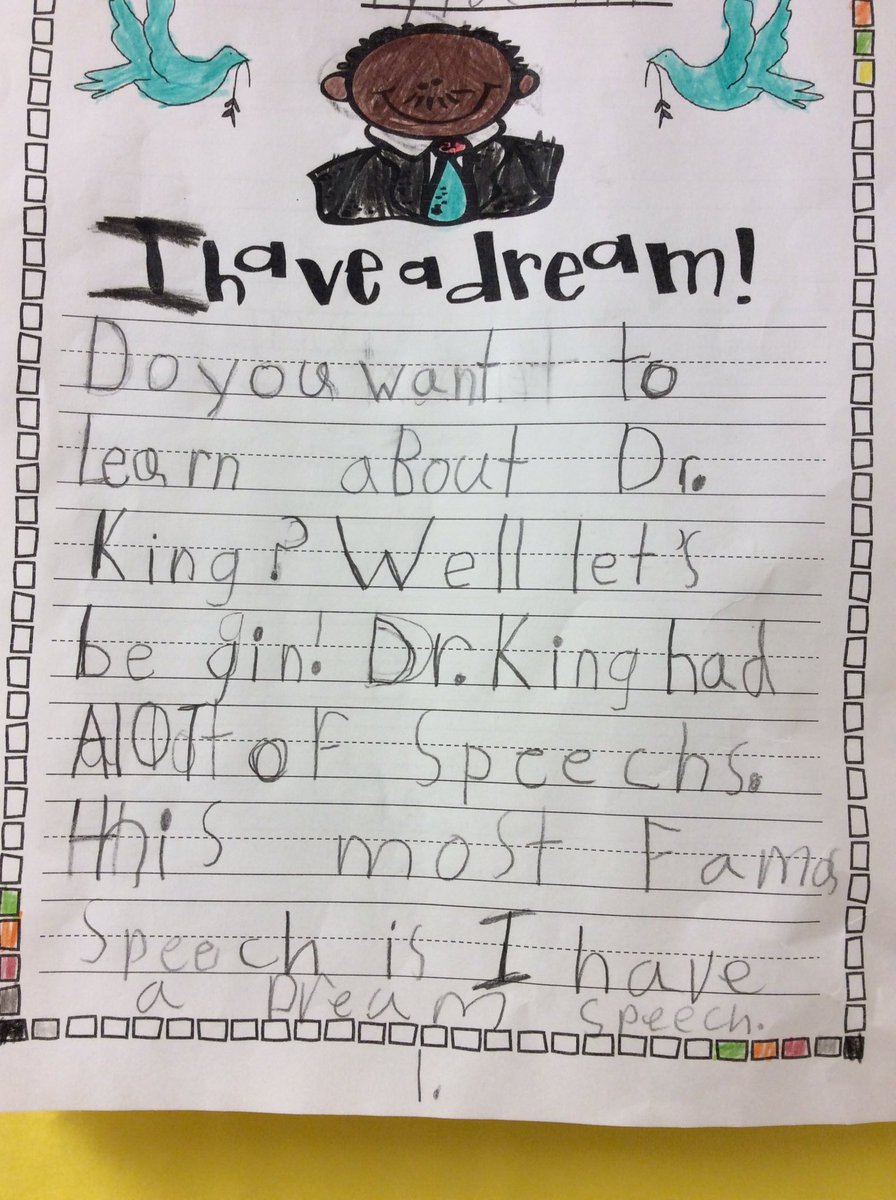 I have a dream!
Do you want to
Learn aBout Dr.
King? Well let's
be gin! Dr. King had
AlOT oF Speechs.
His most Famos
Speech is I have
a Dream speech.
1.